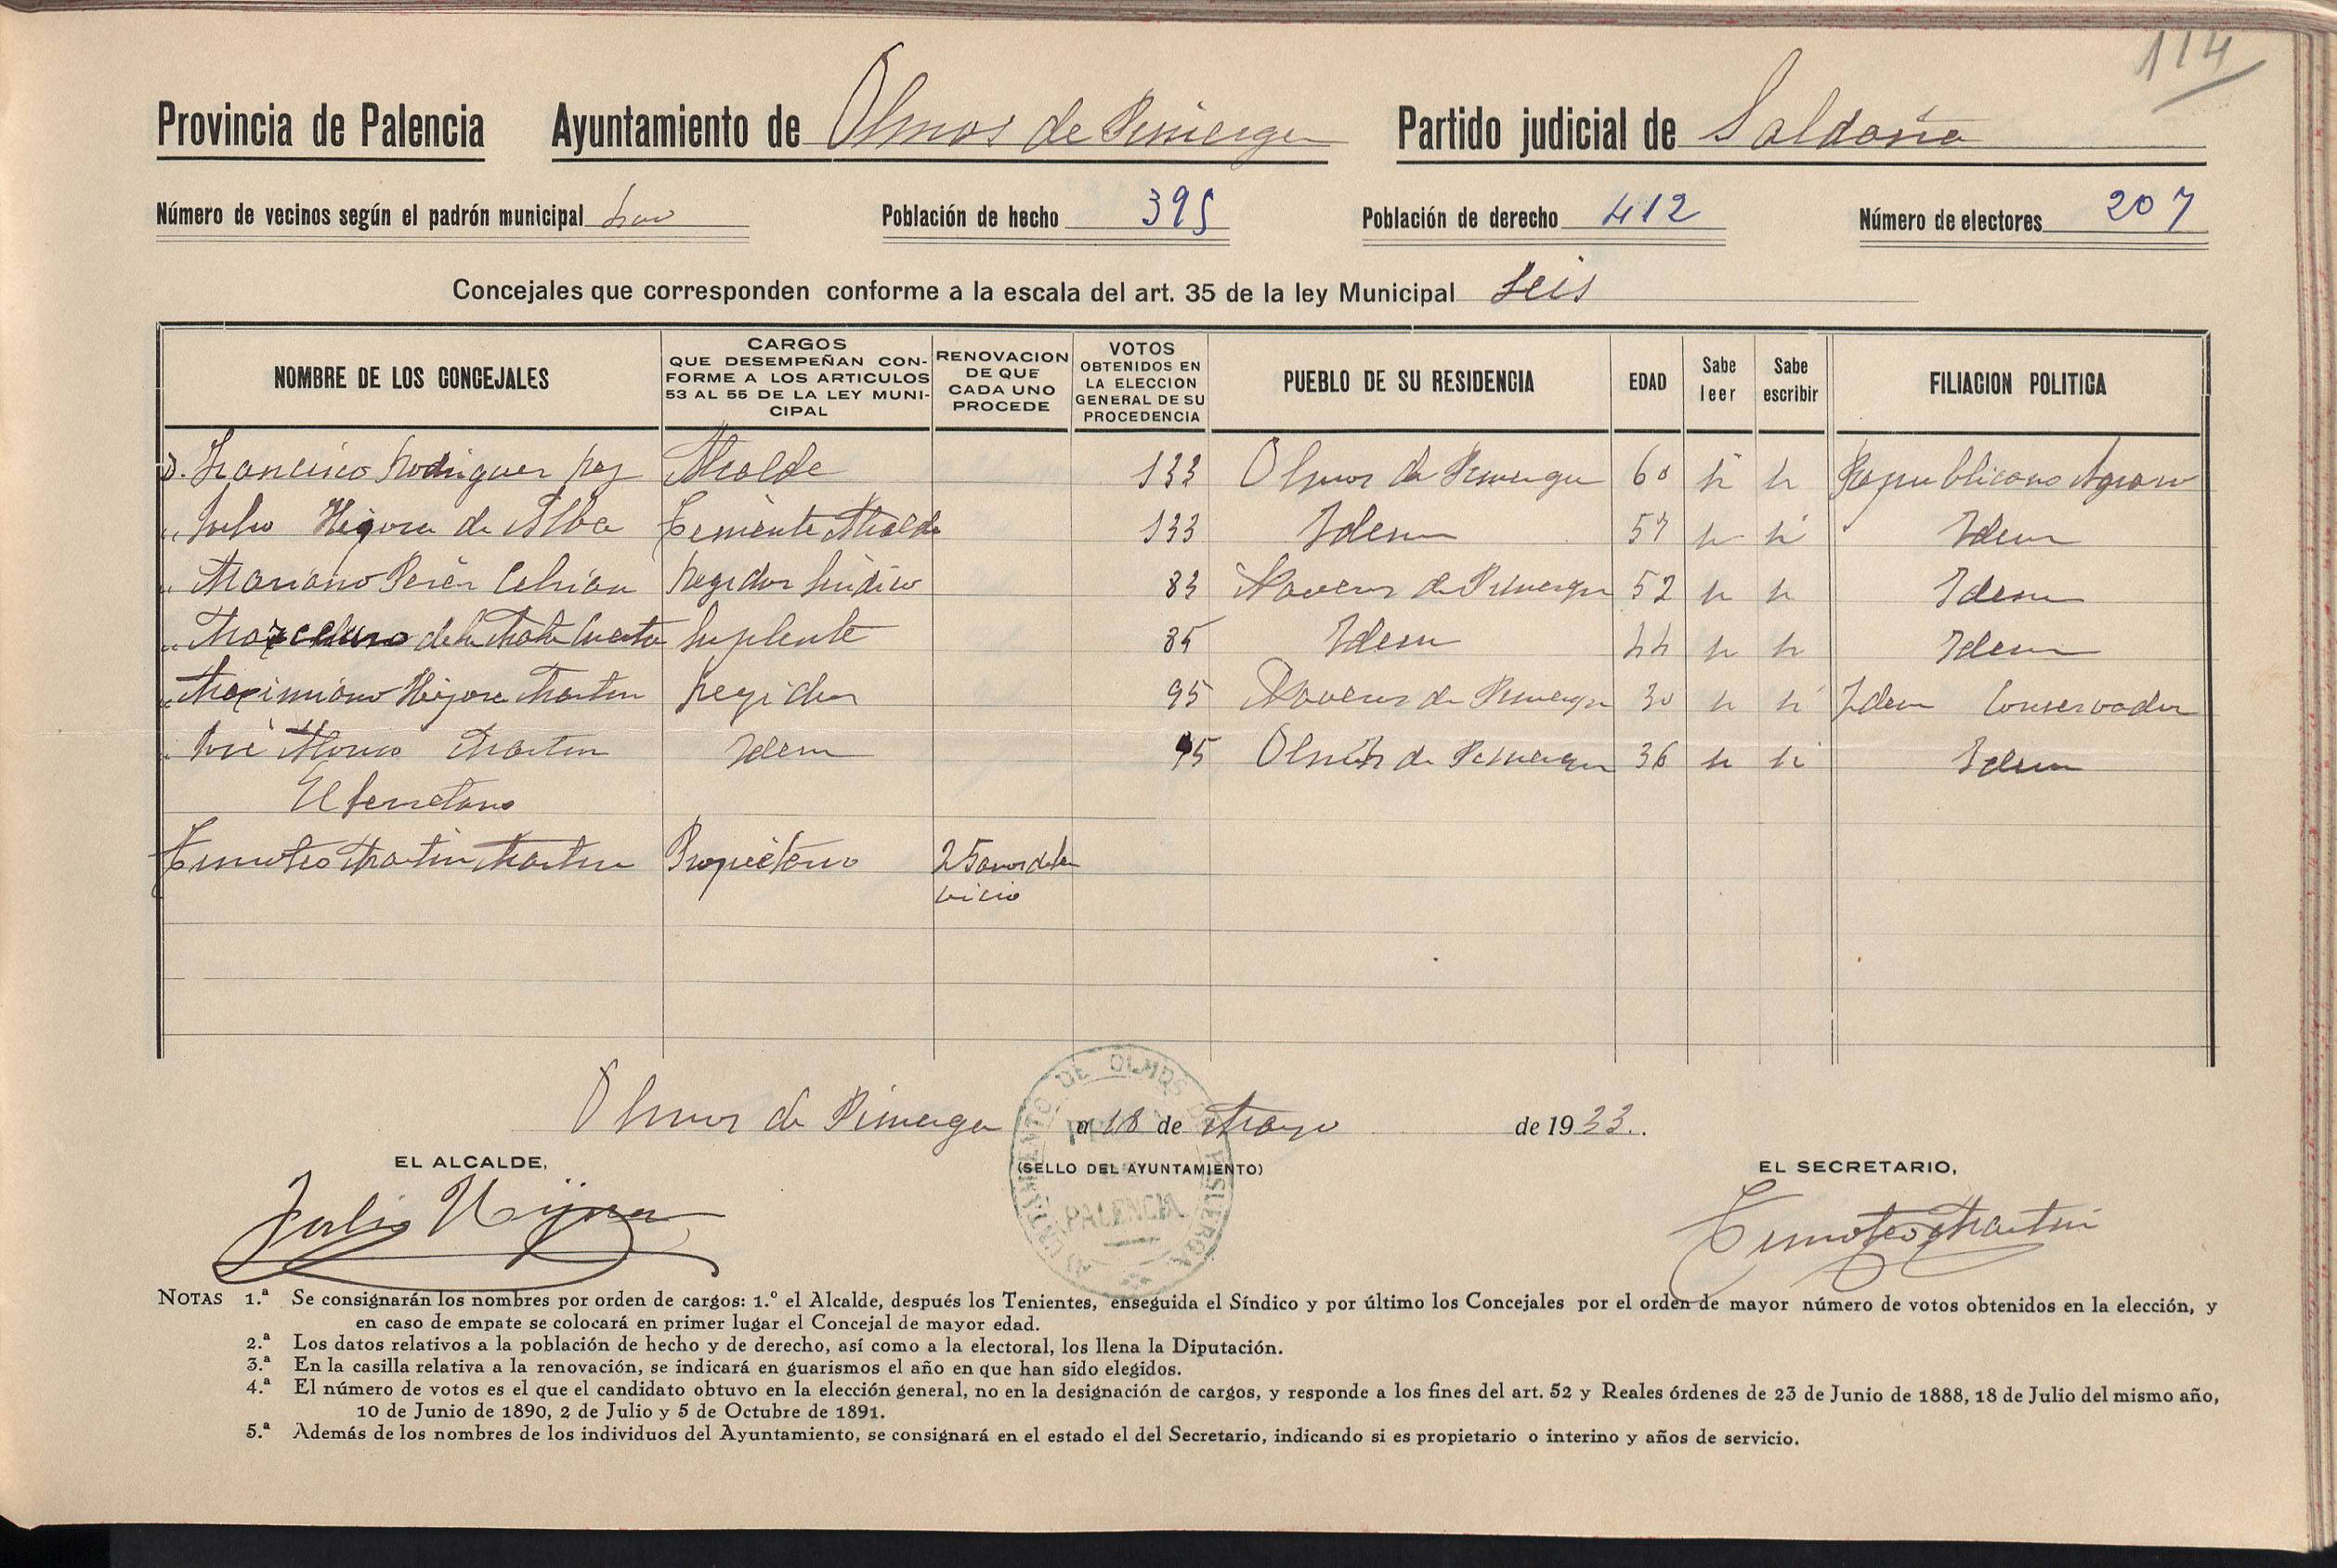 114
Provincia de Palencia Ayuntamiento de Olmos de Pisuerga Partido judicial de Saldaña
Número de vecinos según el padrón municipal Población de hecho 395 Población de derecho 412 Número de electores 207
Concejales que corresponden conforme a la escala del art. 35 de la ley Municipal Seis
NOMBRE DE LOS CONCEJALES CARGOS QUE DESEMPEÑAN CONFORME A LOS ARTICULOS 53 AL 55 DE LA LEY MUNICIPAL RENOVACION DE QUE CADA UNO PROCEDE VOTOS OBTENIDOS EN LA ELECCION GENERAL DE SU PROCEDENCIA PUEBLO DE SU RESIDENCIA EDAD Sabe leer Sabe escribir FILIACION POLITICA
D. Francisco Rodriguez Alcalde 133 Olmos de Pisuerga 60 si si Republicano Agrario
" Julio Hijosa de Alba Teniente Alcalde 133 Idem 57 si si Idem
" Mariano Perez Cebrian Regidor Sindico 83 Naveros de Pisuerga 52 si si Idem
" Marcelino de la Mata Cuesta Suplente 85 Idem 44 si si Idem
" Maximiano Hijosa Martin Regidor 95 Naveros de Pisuerga 30 si si Idem Conservador
" José Alonso Martin Idem 95 Olmos de Pisuerga 36 si si Idem
El Secretario
Timoteo Martin Martin Propietario 25 años de ser
vicio
Olmos de Pisuerga a 18 de Mayo de 1933.
EL ALCALDE, (SELLO DEL AYUNTAMIENTO) EL SECRETARIO,
AYUNTAMIENTO DE OLMOS DE PISUERGA
PALENCIA
Julio Hijosa Timoteo Martin
NOTAS 1.ª Se consignarán los nombres por orden de cargos: 1.º el Alcalde, después los Tenientes, enseguida el Síndico y por último los Concejales por el orden de mayor número de votos obtenidos en la elección, y
en caso de empate se colocará en primer lugar el Concejal de mayor edad.
2.ª Los datos relativos a la población de hecho y de derecho, así como a la electoral, los llena la Diputación.
3.ª En la casilla relativa a la renovación, se indicará en guarismos el año en que han sido elegidos.
4.ª El número de votos es el que el candidato obtuvo en la elección general, no en la designación de cargos, y responde a los fines del art. 52 y Reales órdenes de 23 de Junio de 1888, 18 de Julio del mismo año,
10 de Junio de 1890, 2 de Julio y 5 de Octubre de 1891.
5.ª Además de los nombres de los individuos del Ayuntamiento, se consignará en el estado el del Secretario, indicando si es propietario o interino y años de servicio.